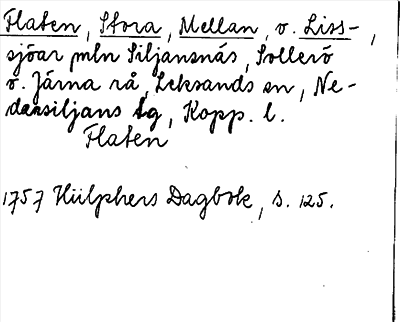 Flaten, Stora, Mellan, o. Liss-,
sjöar mln Siljansnäs, Sollerö
o. Järna rå, Leksands sn, Ne-
dansiljans tg, Kopp. l.
Flaten
1757 Hülphers Dagbok, s. 125.